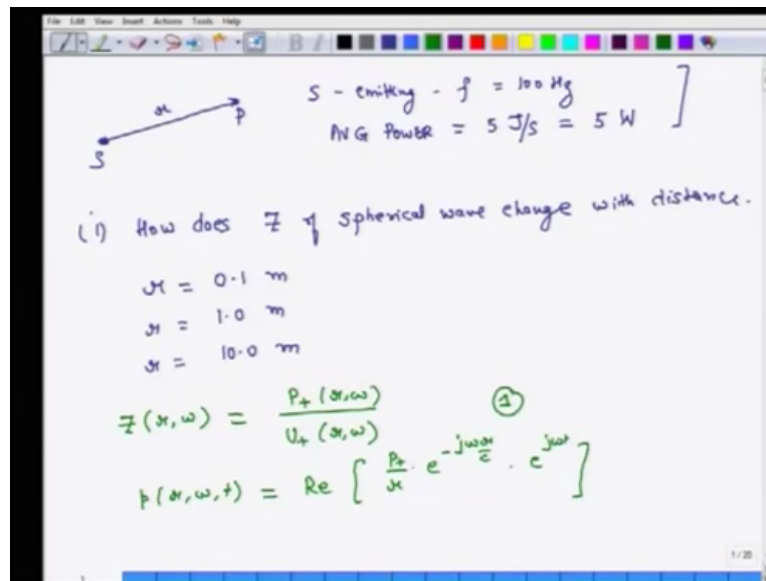 File Edit View Insert Actions Tools Help
r
P
S
S - emitting - f = 100 Hz
AVG POWER = 5 J/s = 5 W ]
(i) How does Z of spherical wave change with distance.
r = 0.1 m
r = 1.0 m
r = 10.0 m
Z(r,ω) = P+(r,ω) / U+(r,ω) ①
p(r,ω,t) = Re [ P+/r · e^{-jωr/c} · e^{jωt} ]
1/20